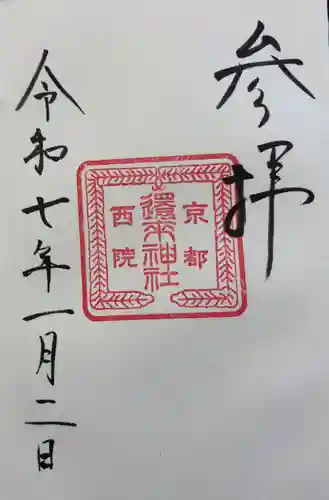 参拝
京都
還来神社
西院
令和七年一月二日